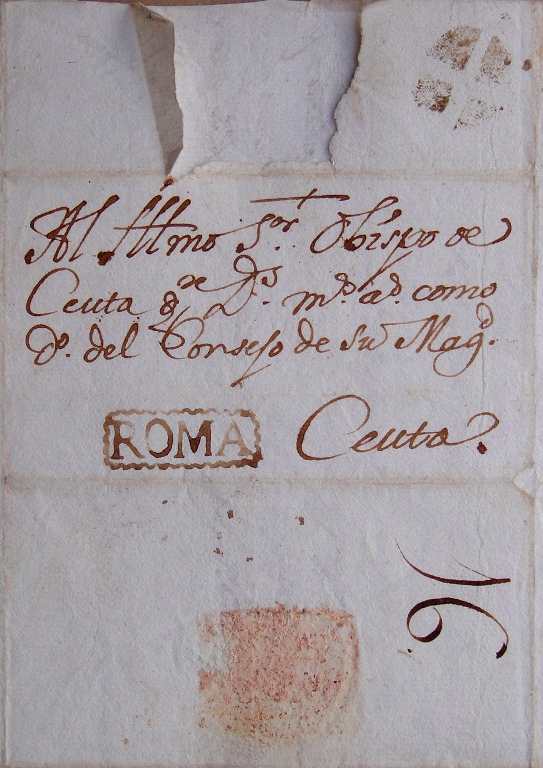 Al Illmo Sor. Obispo de
Ceuta q. de Ds. m.s a.s como
Do. del Consejo de su Magd.
ROMA
Ceuta.